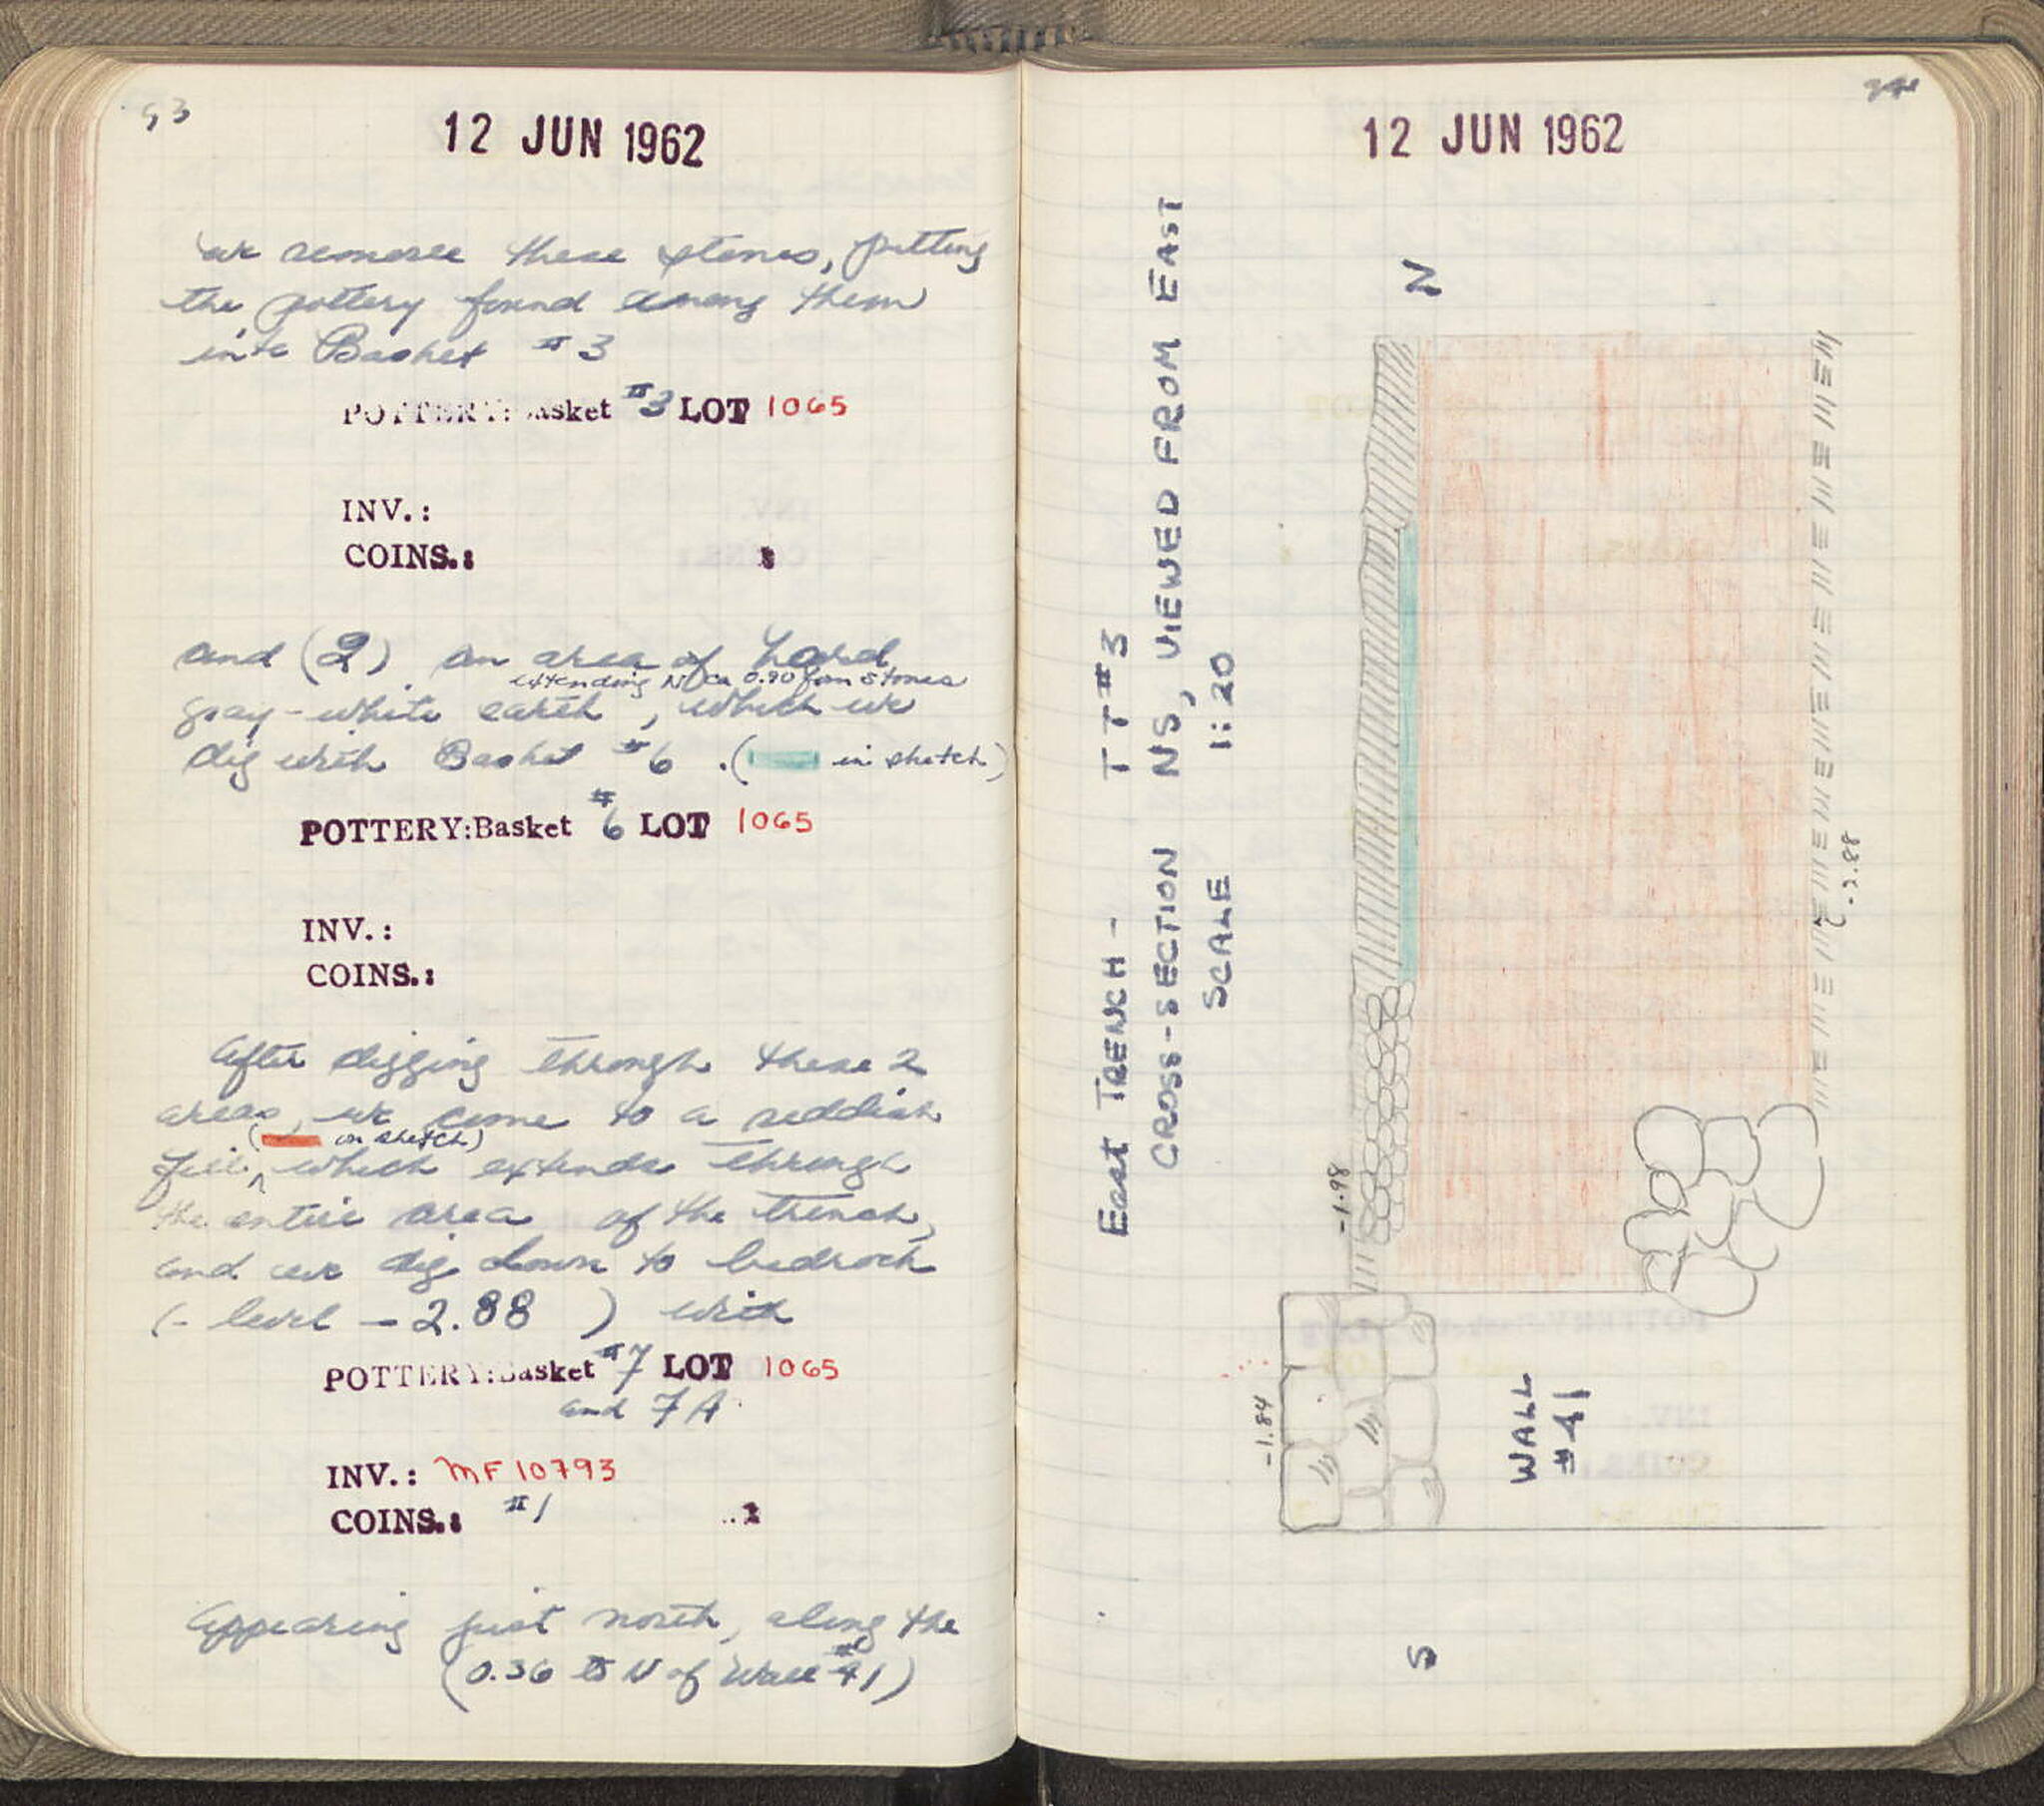 93
12 JUN 1962
we remove these stones, putting
the pottery found among them
into Basket #3
POTTERY: Basket #3 LOT 1065
INV.:
COINS.:
and (2) an area of hard
extending N ca 0.90 from stones
gray-white earth, which we
dig with Basket #6. ( in sketch)
POTTERY:Basket #6 LOT 1065
INV.:
COINS.:
After digging through these 2
areas, we come to a reddish
( in sketch)
fill, which extends through
the entire area of the trench,
and we dig down to bedrock
(- level -2.88 ) with
POTTERY:Basket #7 LOT 1065
and 7A
INV.: MF 10793
COINS.: #1
Appearing just north, along the
(0.36 to N of Wall #41)
12 JUN 1962
East TRENCH - TT #3
CROSS-SECTION NS, VIEWED FROM EAST
SCALE 1:20
N
-1.98
-2.88
-1.84
WALL
#41
S